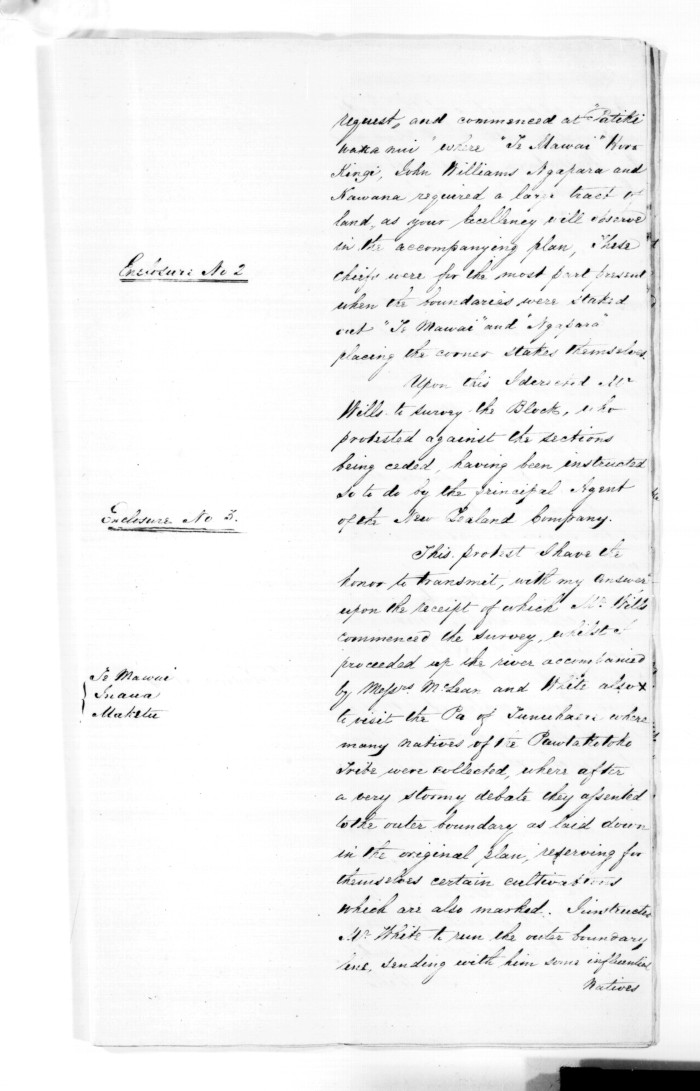 request, and commenced at "Patiki
waka nui" where "Te Mawai" Horo
Kingi, John Williams Ngapara and
Kawana required a large tract of
land, as your Excellency will observe
in the accompanying plan, These
Enclosure No 2
chiefs were for the most part present
when the boundaries were staked
out "Te Mawai" and "Ngapara"
placing the corner stakes themselves.
Upon this I desired Mr
Wills to survey the Block, who
protested against the sections
being ceded, having been instructed
so to do by the principal Agent
Enclosure No 3.
of the New Zealand Company.
This protest I have the
honor to transmit, with my answer
upon the receipt of which Mr Wills
commenced the survey, whilst I
proceeded up the river accompanied
Te Mawai
Inaua
Maketu
by Messrs. McLean and White also x
to visit the Pa of Tunuhaere where
many natives of the Pawtakotoko
Tribe were collected, where after
a very stormy debate they assented
to the outer boundary as laid down
in the original plan, reserving for
themselves certain cultivations
which are also marked. I instructed
Mr White to run the outer boundary
line, sending with him some influential
Natives